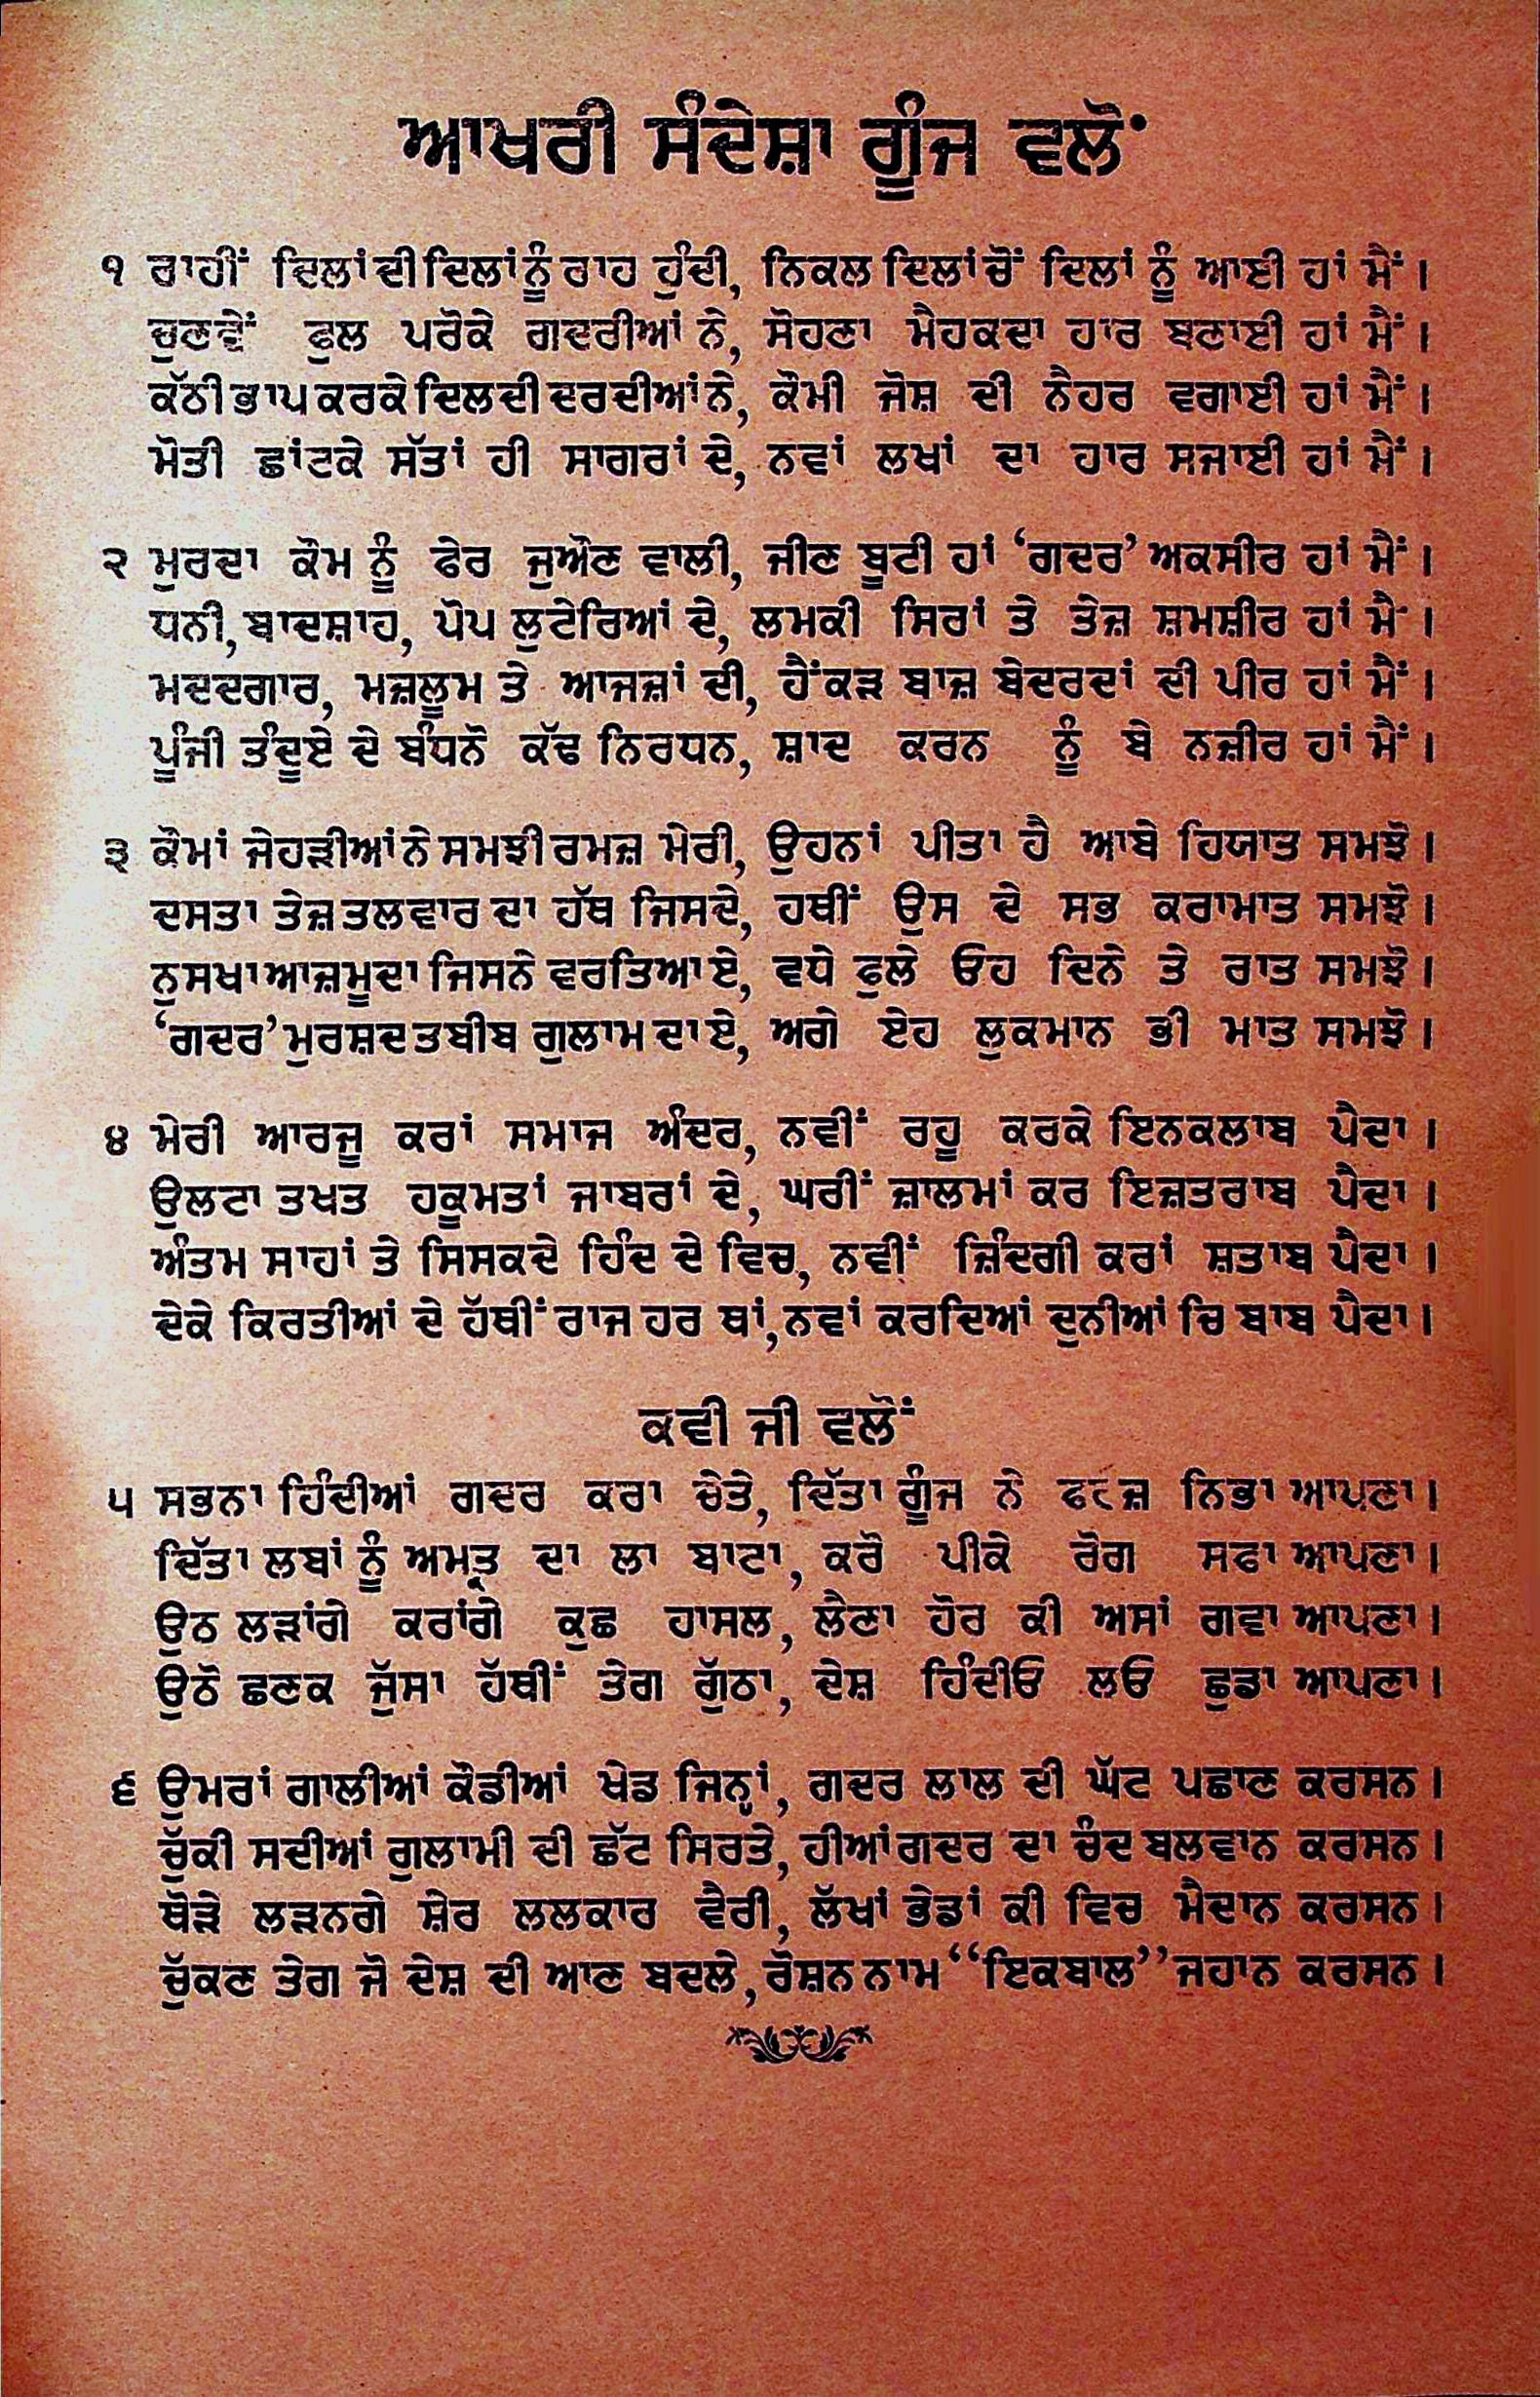 ਆਖਰੀ ਸੰਦੇਸ਼ਾ ਗੂੰਜ ਵਲੋਂ
੧ ਰਾਹੀਂ ਦਿਲਾਂ ਦੀ ਦਿਲਾਂ ਨੂੰ ਰਾਹ ਹੁੰਦੀ, ਨਿਕਲ ਦਿਲਾਂ ਚੋਂ ਦਿਲਾਂ ਨੂੰ ਆਈ ਹਾਂ ਮੈਂ।
ਚੁਣਵੇਂ ਫੁਲ ਪਰੋਕੇ ਗਦਰੀਆਂ ਨੇ, ਸੋਹਣਾ ਮੈਹਕਦਾ ਹਾਰ ਬਣਾਈ ਹਾਂ ਮੈਂ।
ਕੱਠੀ ਭਾਪ ਕਰਕੇ ਦਿਲ ਦੀ ਦਰਦੀਆਂ ਨੇ, ਕੌਮੀ ਜੋਸ਼ ਦੀ ਨੈਹਰ ਵਗਾਈ ਹਾਂ ਮੈਂ।
ਮੋਤੀ ਛਾਂਟਕੇ ਸੱਤਾਂ ਹੀ ਸਾਗਰਾਂ ਦੇ, ਨਵਾਂ ਲਖਾਂ ਦਾ ਹਾਰ ਸਜਾਈ ਹਾਂ ਮੈਂ।
੨ ਮੁਰਦਾ ਕੌਮ ਨੂੰ ਫੇਰ ਜੁਔਣ ਵਾਲੀ, ਜੀਣ ਬੂਟੀ ਹਾਂ ‘ਗਦਰ’ ਅਕਸੀਰ ਹਾਂ ਮੈਂ।
ਧਨੀ, ਬਾਦਸ਼ਾਹ, ਪੋਪ ਲੁਟੇਰਿਆਂ ਦੇ, ਲਮਕੀ ਸਿਰਾਂ ਤੇ ਤੇਜ਼ ਸ਼ਮਸ਼ੀਰ ਹਾਂ ਮੈਂ।
ਮਦਦਗਾਰ, ਮਜ਼ਲੂਮ ਤੇ ਆਜਜ਼ਾਂ ਦੀ, ਹੈਂਕੜ ਬਾਜ਼ ਬੇਦਰਦਾਂ ਦੀ ਪੀਰ ਹਾਂ ਮੈਂ।
ਪੂੰਜੀ ਤੰਦੂਏ ਦੇ ਬੰਧਨੋਂ ਕੱਢ ਨਿਰਧਨ, ਸ਼ਾਦ ਕਰਨ ਨੂੰ ਬੇ ਨਜ਼ੀਰ ਹਾਂ ਮੈਂ।
੩ ਕੌਮਾਂ ਜੇਹੜੀਆਂ ਨੇ ਸਮਝੀ ਰਮਜ਼ ਮੇਰੀ, ਉਹਨਾਂ ਪੀਤਾ ਹੈ ਆਬੇ ਹਿਯਾਤ ਸਮਝੋ।
ਦਸਤਾ ਤੇਜ਼ ਤਲਵਾਰ ਦਾ ਹੱਥ ਜਿਸਦੇ, ਹਥੀਂ ਉਸ ਦੇ ਸਭ ਕਰਾਮਾਤ ਸਮਝੋ।
ਨੁਸਖਾ ਆਜ਼ਮੂਦਾ ਜਿਸਨੇ ਵਰਤਿਆ ਏ, ਵਧੇ ਫੁਲੇ ਓਹ ਦਿਨੇ ਤੇ ਰਾਤ ਸਮਝੋ।
‘ਗਦਰ’ ਮੁਰਸ਼ਦ ਤਬੀਬ ਗੁਲਾਮ ਦਾ ਏ, ਅਗੇ ਏਹ ਲੁਕਮਾਨ ਭੀ ਮਾਤ ਸਮਝੋ।
੪ ਮੇਰੀ ਆਰਜੂ ਕਰਾਂ ਸਮਾਜ ਅੰਦਰ, ਨਵੀਂ ਰਹੂ ਕਰਕੇ ਇਨਕਲਾਬ ਪੈਦਾ।
ਉਲਟਾ ਤਖਤ ਹਕੂਮਤਾਂ ਜਾਬਰਾਂ ਦੇ, ਘਰੀਂ ਜ਼ਾਲਮਾਂ ਕਰ ਇਜ਼ਤਰਾਬ ਪੈਦਾ।
ਅੰਤਮ ਸਾਹਾਂ ਤੇ ਸਿਸਕਦੇ ਹਿੰਦ ਦੇ ਵਿਚ, ਨਵੀਂ ਜ਼ਿੰਦਗੀ ਕਰਾਂ ਸ਼ਤਾਬ ਪੈਦਾ।
ਦੇਕੇ ਕਿਰਤੀਆਂ ਦੇ ਹੱਥੀਂ ਰਾਜ ਹਰ ਥਾਂ, ਨਵਾਂ ਕਰਦਿਆਂ ਦੁਨੀਆਂ ਚਿ ਬਾਬ ਪੈਦਾ।
ਕਵੀ ਜੀ ਵਲੋਂ
੫ ਸਭਨਾ ਹਿੰਦੀਆਂ ਗਦਰ ਕਰਾ ਚੇਤੇ, ਦਿੱਤਾ ਗੂੰਜ ਨੇ ਫਰਜ਼ ਨਿਭਾ ਆਪਣਾ।
ਦਿੱਤਾ ਲਬਾਂ ਨੂੰ ਅਮਤ੍ਰ ਦਾ ਲਾ ਬਾਟਾ, ਕਰੋ ਪੀਕੇ ਰੋਗ ਸਫਾ ਆਪਣਾ।
ਉਠ ਲੜਾਂਗੇ ਕਰਾਂਗੇ ਕੁਛ ਹਾਸਲ, ਲੈਣਾ ਹੋਰ ਕੀ ਅਸਾਂ ਗਵਾ ਆਪਣਾ।
ਉਠੋ ਛਣਕ ਜੁੱਸਾ ਹੱਥੀਂ ਤੇਗ ਗੁੱਠਾ, ਦੇਸ਼ ਹਿੰਦੀਓ ਲਓ ਛੁਡਾ ਆਪਣਾ।
੬ ਉਮਰਾਂ ਗਾਲੀਆਂ ਕੌਡੀਆਂ ਖੇਡ ਜਿਨ੍ਹਾਂ, ਗਦਰ ਲਾਲ ਦੀ ਘੱਟ ਪਛਾਣ ਕਰਸਨ।
ਚੁੱਕੀ ਸਦੀਆਂ ਗੁਲਾਮੀ ਦੀ ਛੱਟ ਸਿਰਤੇ, ਹੀਆਂ ਗਦਰ ਦਾ ਚੰਦ ਬਲਵਾਨ ਕਰਸਨ।
ਥੋੜੇ ਲੜਨਗੇ ਸ਼ੇਰ ਲਲਕਾਰ ਵੈਰੀ, ਲੱਖਾਂ ਭੇਡਾਂ ਕੀ ਵਿਚ ਮੈਦਾਨ ਕਰਸਨ।
ਚੁੱਕਣ ਤੇਗ ਜੋ ਦੇਸ਼ ਦੀ ਆਣ ਬਦਲੇ, ਰੋਸ਼ਨ ਨਾਮ “ਇਕਬਾਲ” ਜਹਾਨ ਕਰਸਨ।